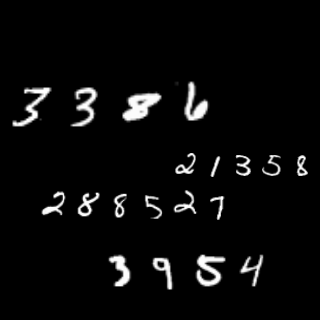 3386
21358
288527
3954